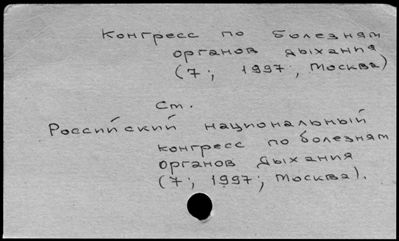 Конгресс по болезням
органов дыхания
(7; 1997; Москва)
см.
Российский национальный
конгресс по болезням
органов дыхания
(7; 1997; Москва).